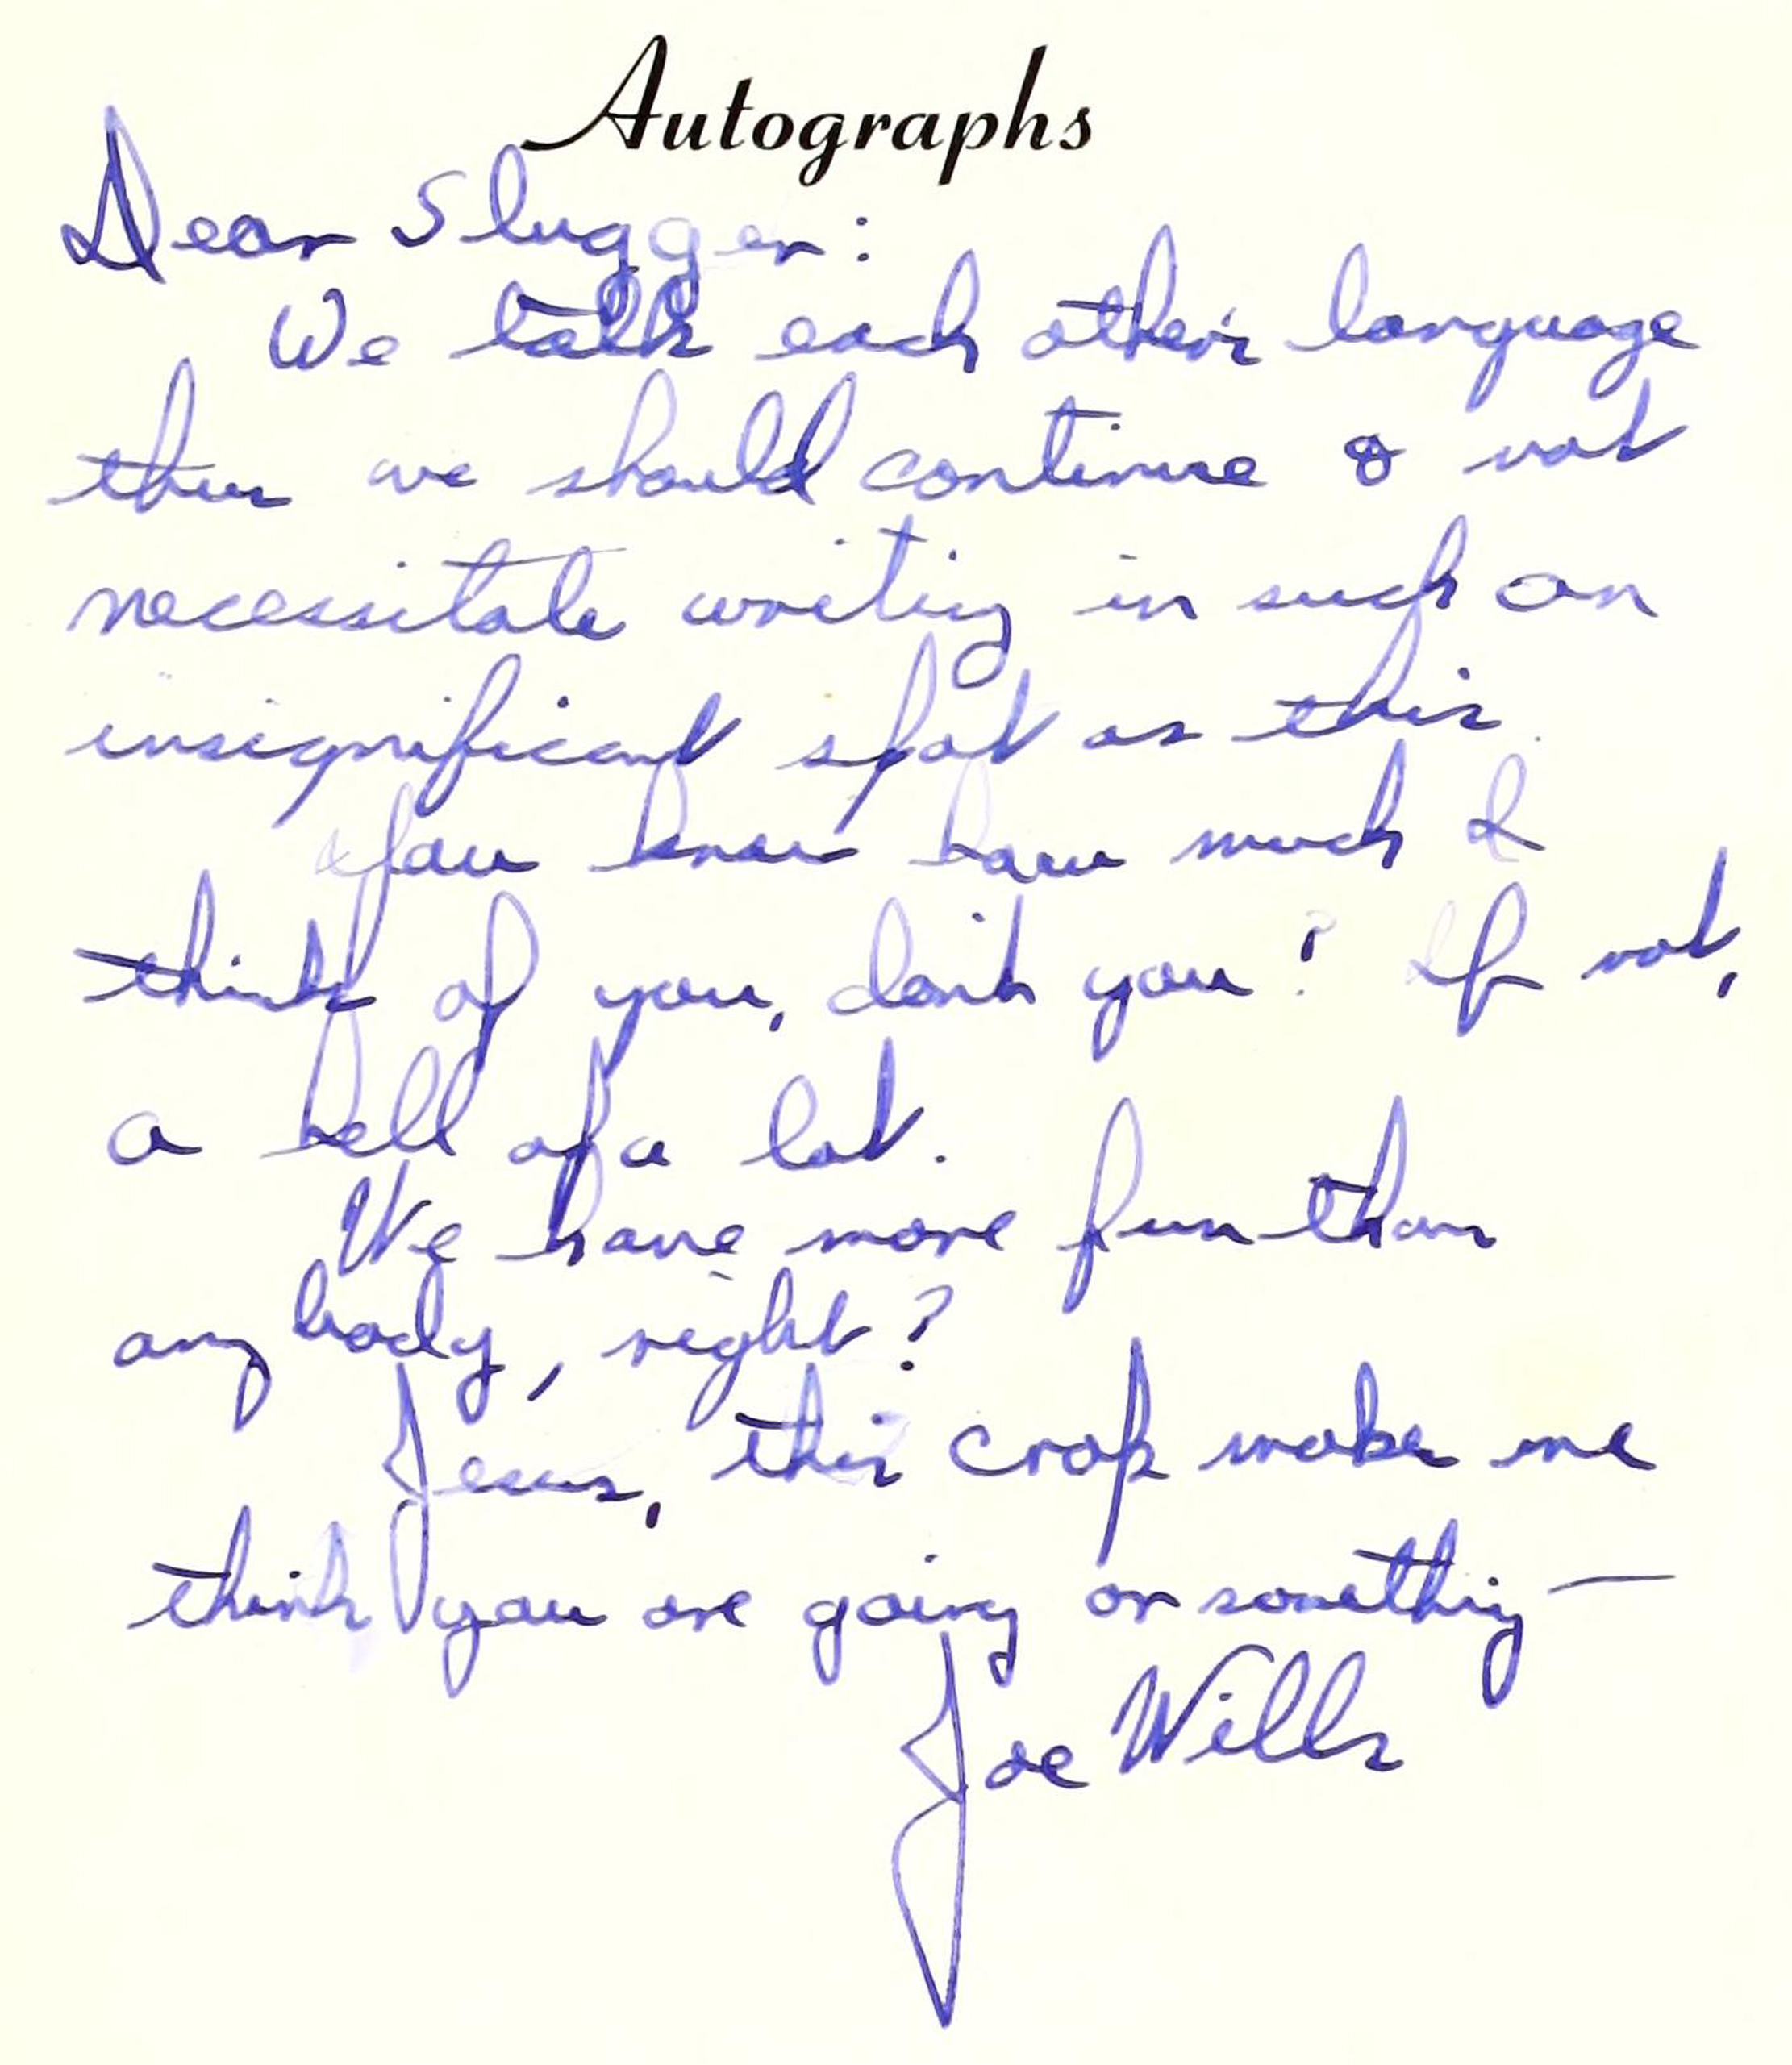 Autographs
Dear Slugger:
We talk each other's language
then we should continue & not
necessitate writing in such an
insignificant spot as this.
You know how much I
think of you, don't you? If not,
a hell of a lot.
We have more fun than
anybody, right?
Jesus, this crap make me
think you are going or something —
Joe Wills